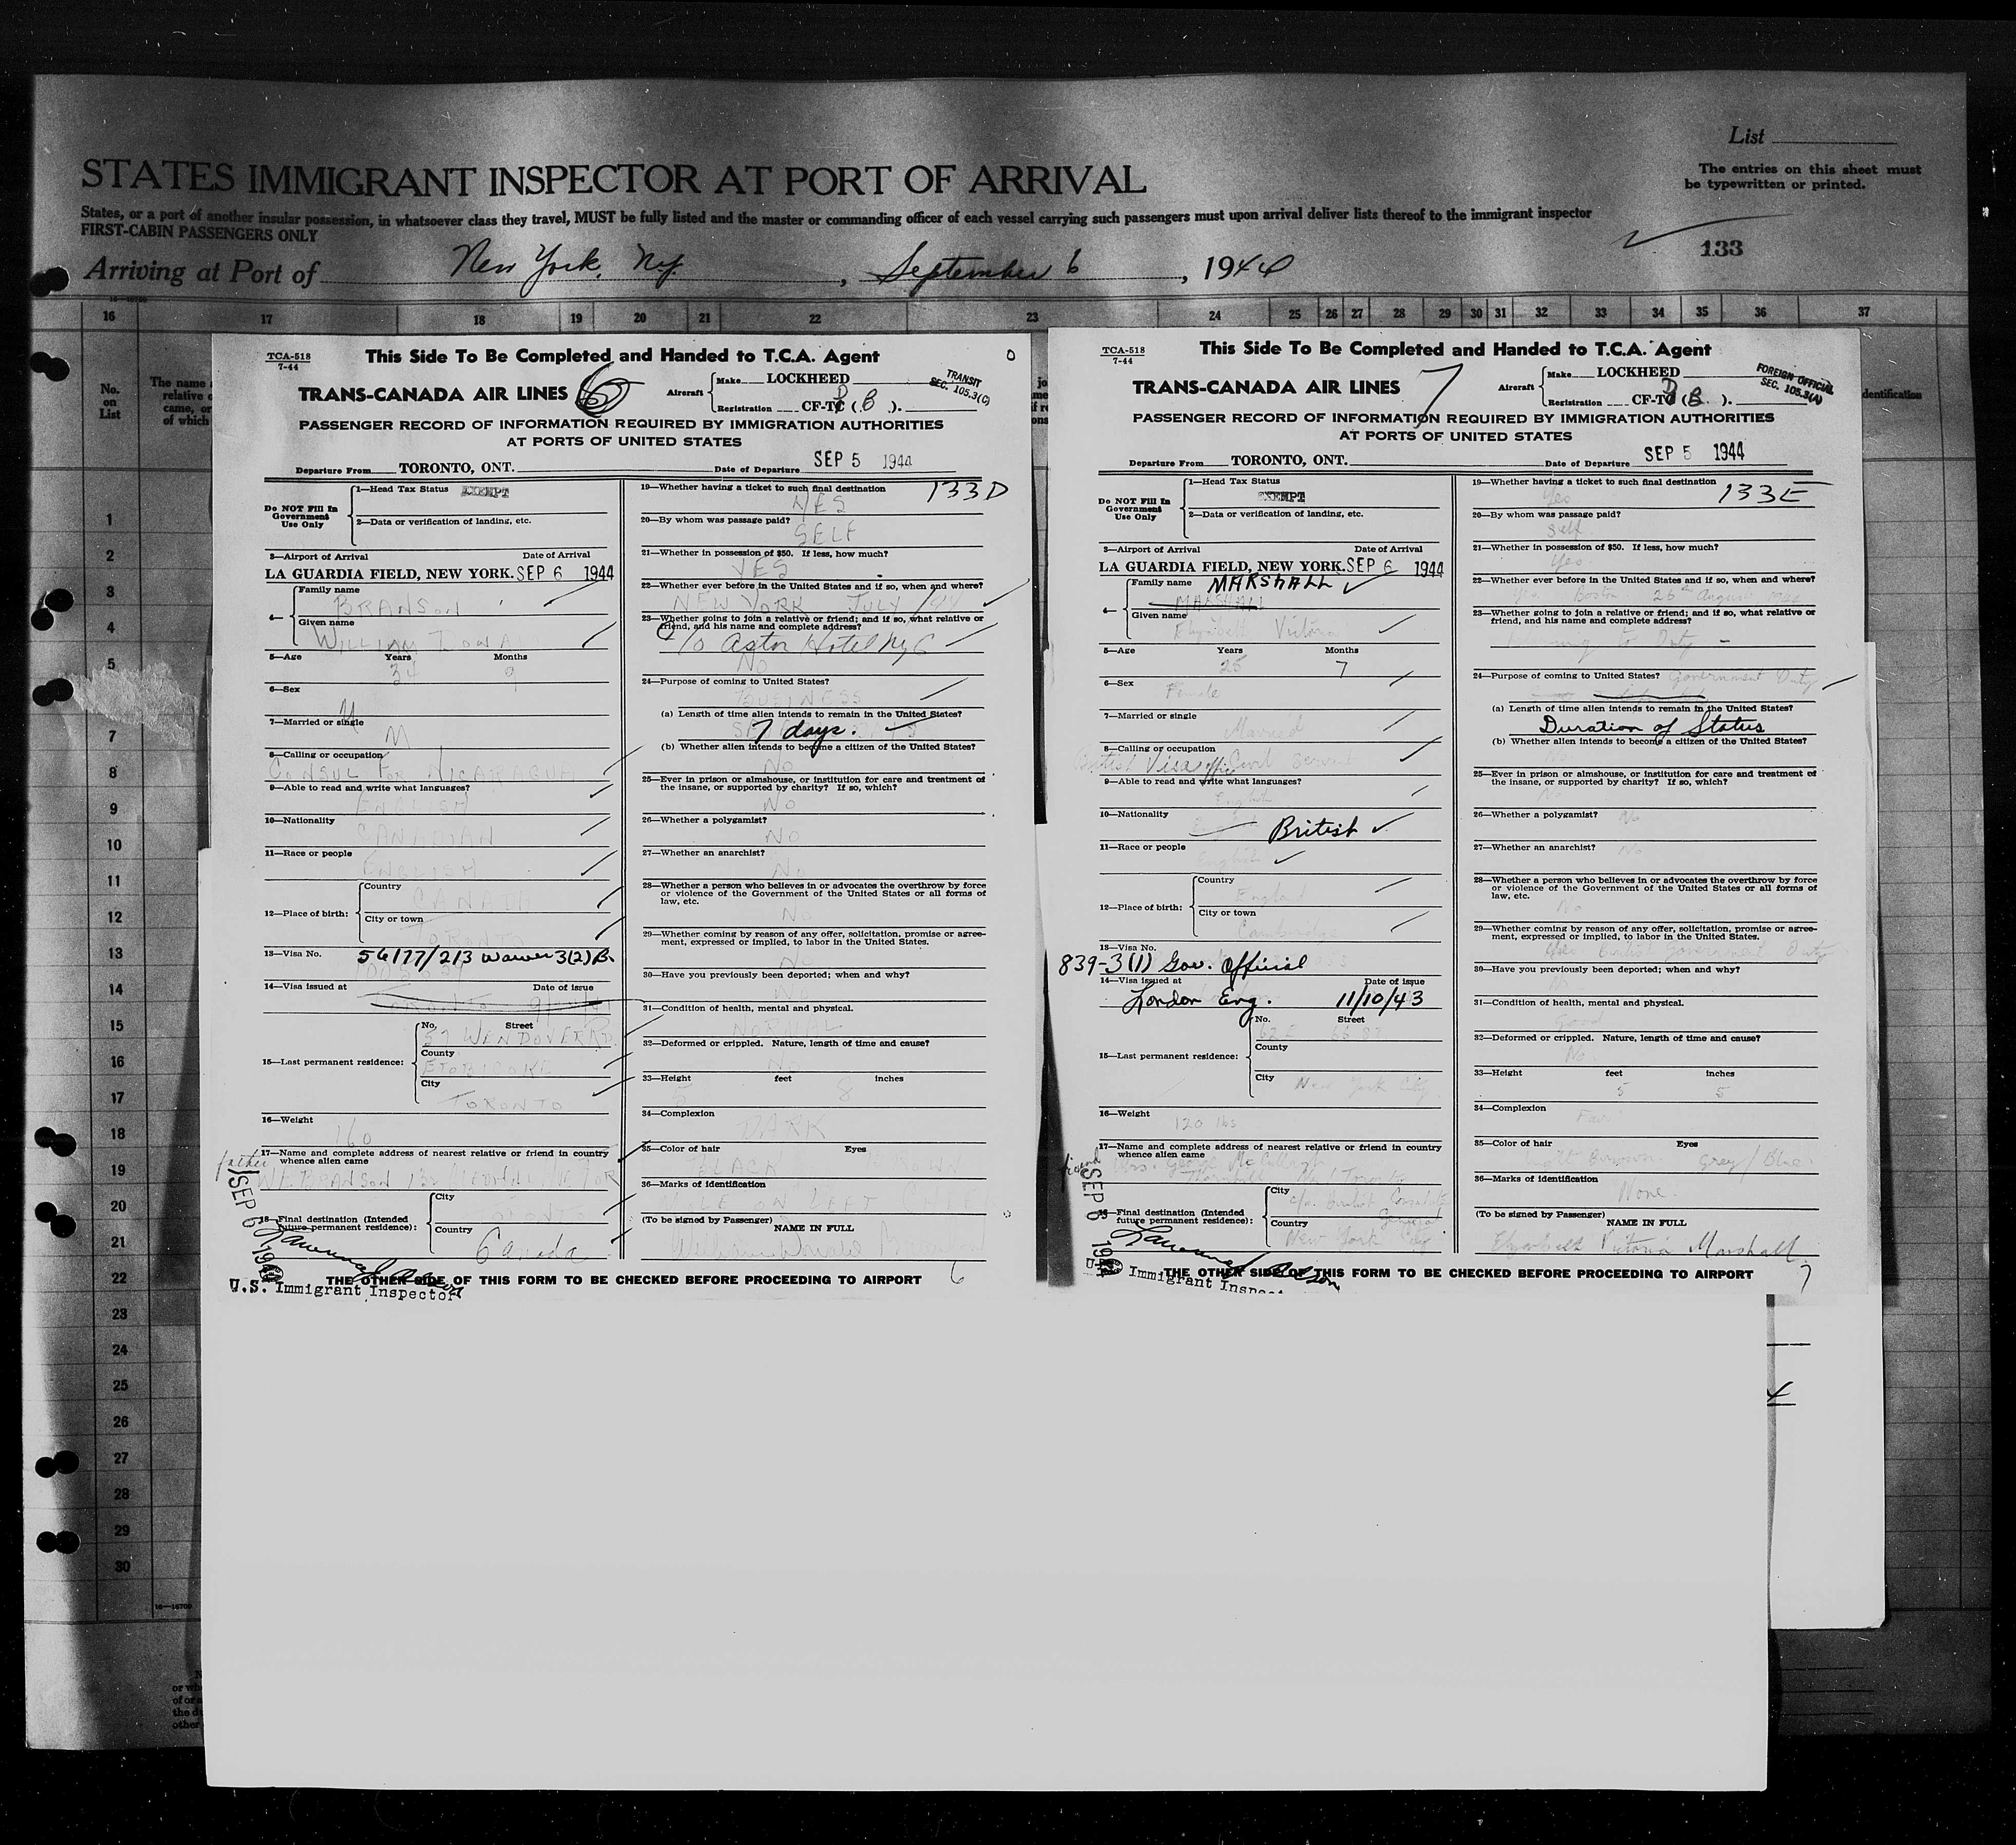 List
The entries on this sheet must
be typewritten or printed.
STATES IMMIGRANT INSPECTOR AT PORT OF ARRIVAL
States, or a port of another insular possession, in whatsoever class they travel, MUST be fully listed and the master or commanding officer of each vessel carrying such passengers must upon arrival deliver lists thereof to the immigrant inspector
FIRST-CABIN PASSENGERS ONLY
133
Arriving at Port of New York, N.Y. , September 6 , 1944
16 17 18 19 20 21 22 23 24 25 26 27 28 29 30 31 32 33 34 35 36 37
No.
on
List
The name
relative
came, or
of which
dentification
1
2
3
4
5
6
7
8
9
10
11
12
13
14
15
16
17
18
19
20
21
22
23
24
25
26
27
28
29
30
16—18700
TCA-518
7-44
This Side To Be Completed and Handed to T.C.A. Agent
TRANS-CANADA AIR LINES 6
Aircraft
Make LOCKHEED
Registration CF-TC ( B ).
TRANSIT
SEC. 105.3(C)
PASSENGER RECORD OF INFORMATION REQUIRED BY IMMIGRATION AUTHORITIES
AT PORTS OF UNITED STATES
Departure From TORONTO, ONT. Date of Departure SEP 5 1944
Do NOT Fill In
Government
Use Only
1—Head Tax Status EXEMPT
2—Data or verification of landing, etc.
3—Airport of Arrival Date of Arrival
LA GUARDIA FIELD, NEW YORK. SEP 6 1944
4—
Family name
BRANSON
Given name
WILLIAM
5—Age Years Months
34 9
6—Sex
M
7—Married or single
M
8—Calling or occupation
CONSUL FOR NICARAGUA
9—Able to read and write what languages?
ENGLISH
10—Nationality
CANADIAN
11—Race or people
ENGLISH
12—Place of birth:
Country
CANADA
City or town
TORONTO
13—Visa No. 56177/213 Waiver 3(2)B.
14—Visa issued at Date of issue
15—Last permanent residence:
No. Street
57 WENDOVER RD
County
ETOBICOKE
City
TORONTO
16—Weight
160
17—Name and complete address of nearest relative or friend in country
whence alien came
father
W E BRANSON
18—Final destination (Intended
future permanent residence):
City
Country
Canada
SEP 6 1944
U.S. Immigrant Inspector
133 D
19—Whether having a ticket to such final destination
YES
20—By whom was passage paid?
SELF
21—Whether in possession of $50. If less, how much?
YES
22—Whether ever before in the United States and if so, when and where?
NEW YORK JULY
23—Whether going to join a relative or friend; and if so, what relative or
friend, and his name and complete address?
c/o Astor Hotel NYC
NO
24—Purpose of coming to United States?
BUSINESS
(a) Length of time alien intends to remain in the United States?
7 days.
(b) Whether alien intends to become a citizen of the United States?
NO
25—Ever in prison or almshouse, or institution for care and treatment of
the insane, or supported by charity? If so, which?
NO
26—Whether a polygamist?
NO
27—Whether an anarchist?
NO
28—Whether a person who believes in or advocates the overthrow by force
or violence of the Government of the United States or all forms of
law, etc.
NO
29—Whether coming by reason of any offer, solicitation, promise or agree-
ment, expressed or implied, to labor in the United States.
NO
30—Have you previously been deported; when and why?
NO
31—Condition of health, mental and physical.
NORMAL
32—Deformed or crippled. Nature, length of time and cause?
NO
33—Height feet inches
5 8
34—Complexion
DARK
35—Color of hair Eyes
BLACK
36—Marks of identification
ON LEFT
(To be signed by Passenger) NAME IN FULL
William
THE OTHER SIDE OF THIS FORM TO BE CHECKED BEFORE PROCEEDING TO AIRPORT
6
TCA-518
7-44
This Side To Be Completed and Handed to T.C.A. Agent
TRANS-CANADA AIR LINES 7
Aircraft
Make LOCKHEED
Registration CF-TC ( B ).
FOREIGN OFFICIAL
SEC. 105.3(A)
PASSENGER RECORD OF INFORMATION REQUIRED BY IMMIGRATION AUTHORITIES
AT PORTS OF UNITED STATES
Departure From TORONTO, ONT. Date of Departure SEP 5 1944
Do NOT Fill In
Government
Use Only
1—Head Tax Status
EXEMPT
2—Data or verification of landing, etc.
3—Airport of Arrival Date of Arrival
LA GUARDIA FIELD, NEW YORK. SEP 6 1944
4—
Family name MARSHALL
MARSHALL
Given name
Elizabeth Victoria
5—Age Years Months
25 7
6—Sex
Female
7—Married or single
Married
8—Calling or occupation
British Visa Office Civil Servant
9—Able to read and write what languages?
English
10—Nationality
British
11—Race or people
English
12—Place of birth:
Country
England
City or town
Cambridge
13—Visa No.
839-3(1) Gov. Official
14—Visa issued at Date of issue
London Eng. 11/10/43
15—Last permanent residence:
No. Street
County
City New York City
16—Weight
120 lbs
17—Name and complete address of nearest relative or friend in country
whence alien came
friend
Mrs. George McCullagh
Thornhill Toronto
18—Final destination (Intended
future permanent residence):
City
c/o British Consulate
General
Country
New York City
SEP 6 1944
Immigrant Inspec
133 E
19—Whether having a ticket to such final destination
Yes
20—By whom was passage paid?
Self
21—Whether in possession of $50. If less, how much?
Yes
22—Whether ever before in the United States and if so, when and where?
Yes Boston 26th August
23—Whether going to join a relative or friend; and if so, what relative or
friend, and his name and complete address?
to Duty —
24—Purpose of coming to United States? Government Duty
(a) Length of time alien intends to remain in the United States?
Duration of Status
(b) Whether alien intends to become a citizen of the United States?
25—Ever in prison or almshouse, or institution for care and treatment of
the insane, or supported by charity? If so, which?
26—Whether a polygamist? No
27—Whether an anarchist? No
28—Whether a person who believes in or advocates the overthrow by force
or violence of the Government of the United States or all forms of
law, etc.
No
29—Whether coming by reason of any offer, solicitation, promise or agree-
ment, expressed or implied, to labor in the United States.
British Government Duty
30—Have you previously been deported; when and why?
No
31—Condition of health, mental and physical.
Good
32—Deformed or crippled. Nature, length of time and cause?
No
33—Height feet inches
5 5
34—Complexion
Fair
35—Color of hair Eyes
Light Brown Grey/Blue
36—Marks of identification
None.
(To be signed by Passenger)
NAME IN FULL
Elizabeth Victoria Marshall.
THE OTHER SIDE OF THIS FORM TO BE CHECKED BEFORE PROCEEDING TO AIRPORT
7